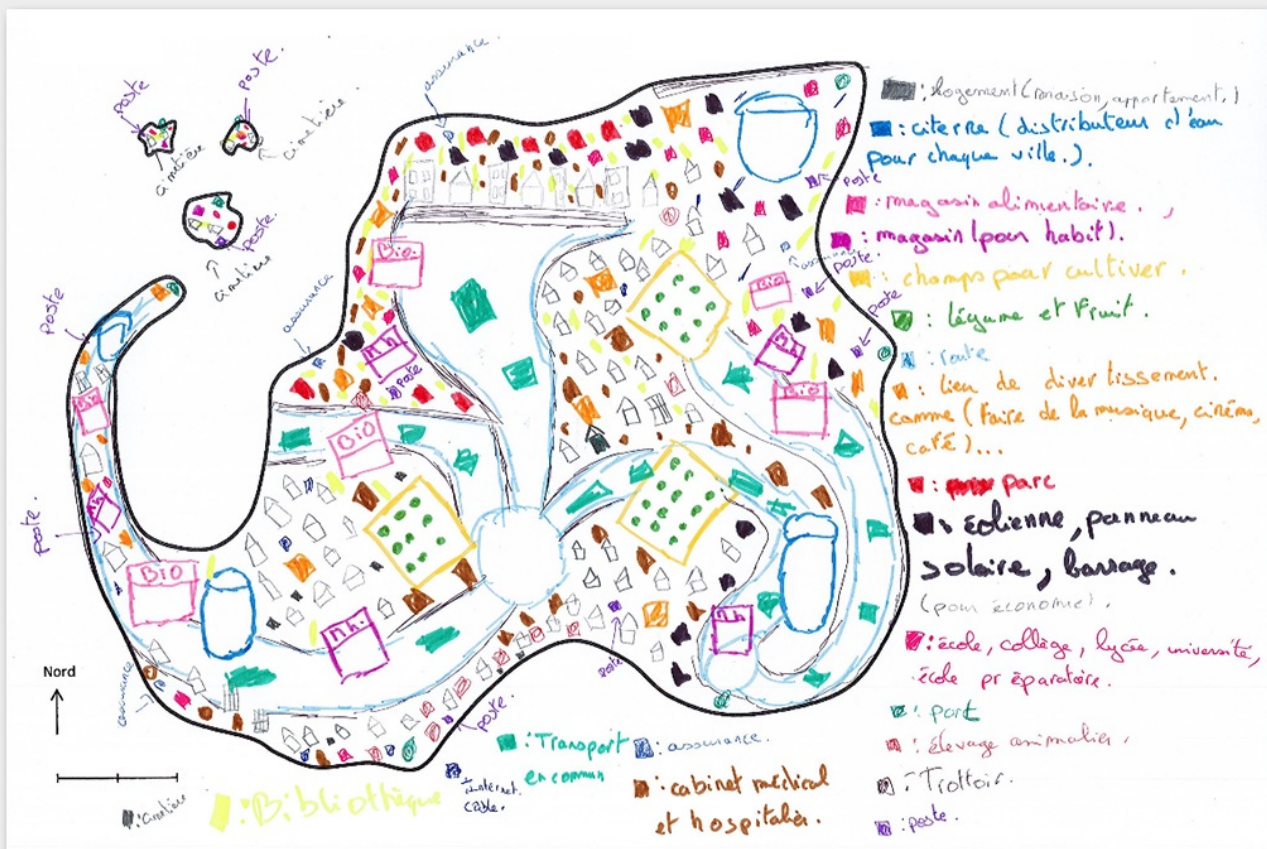 assurance.
poste
poste.
cimetière
cimetière.
poste
cimetière
Poste
assurance
Bio.
M.h
Poste
Bio
Bio
M.h
poste.
BiO
M.h.
assurance
poste.
poste
M.h
poste
assurance
poste.
poste
Bio
M.h
BiO
Nord
: logement (maison, appartement.)
: citerne (distributeur d'eau
pour chaque ville.).
: magasin alimentaire.,
: magasin (pour habit).
: champs pour cultiver.
: légume et fruit.
: route
: lieu de divertissement.
comme (faire de la musique, cinéma,
café)...
: parc
: éolienne, panneau
solaire, barrage.
(pour économie).
: école, collège, lycée, université,
école préparatoire.
: port
: élevage animalier.
: Trottoir.
: poste.
: Transport
en commun
: assurance.
: cabinet médical
et hospitalier.
: internet
cable.
: Bibliothèque
: cimetière